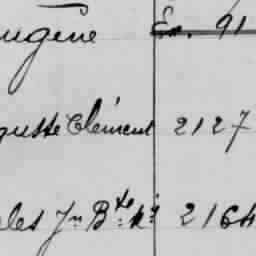 ugène Ex. 91
guste Clément 2127
les Jn Bte 2164